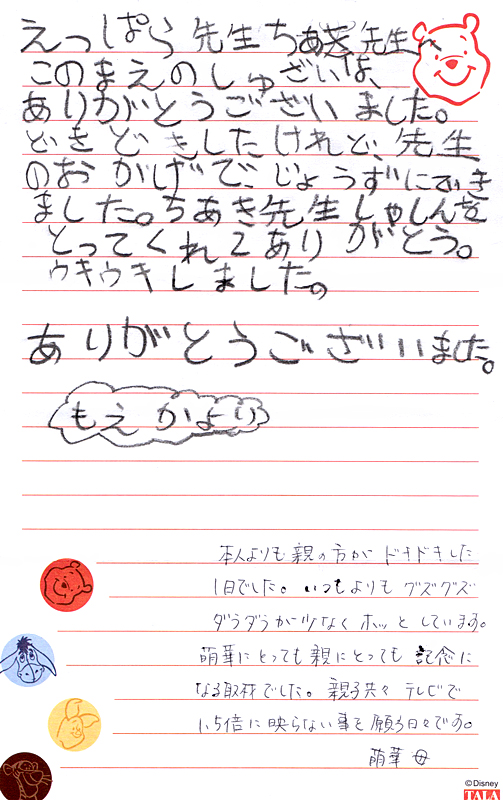 えっぱら先生ちあき先生へ
このまえのしゅざいは、
ありがとうございました。
どきどきしたけれど、先生
のおかげで、じょうずにでき
ました。ちあき先生しゃしんを
とってくれてありがとう。
ウキウキしました。
ありがとうございました。
もえかより
本人よりも親の方がドキドキした
1日でした。いつもよりもグズグズ
ダラダラが少なくホッとしています。
萌華にとっても親にとっても記念に
なる取材でした。親子共々テレビで
1.5倍に映らない事を願う日々です。
萌華 母
©Disney
TALA